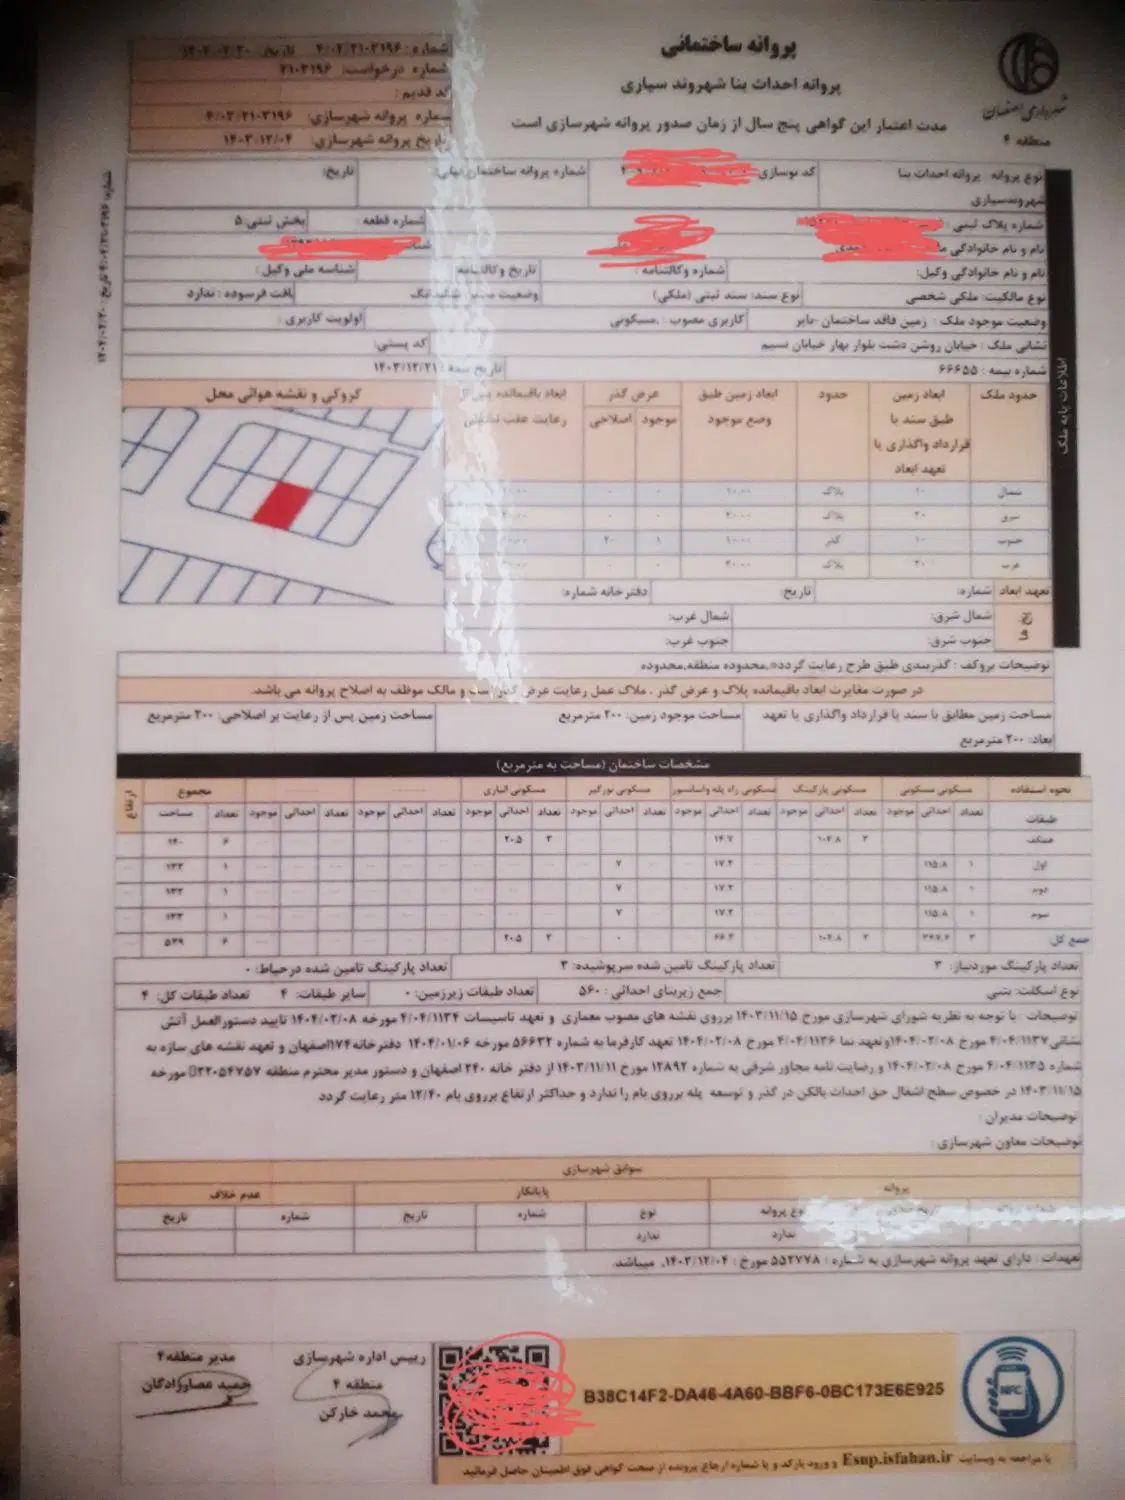 پروانه ساختمانی
پروانه احداث بنا شهروند سپاری
مدت اعتبار این گواهی پنج سال از زمان صدور پروانه شهرسازی است
شهرداری اصفهان
منطقه ۴
شماره: ۴/۰۴/۲۱۰۳۱۹۶ تاریخ: ۱۴۰۴/۰۲/۲۰
شماره درخواست: ۲۱۰۳۱۹۶
کد قدیم:
شماره پروانه شهرسازی: ۴/۰۳/۲۱۰۳۱۹۶
تاریخ پروانه شهرسازی: ۱۴۰۳/۱۲/۰۴
نوع پروانه: پروانه احداث بنا شهروندسپاری
کد نوسازی
شماره پروانه ساختمان
تاریخ:
شماره پلاک ثبتی:
شماره قطعه:
بخش ثبتی: ۵
نام و نام خانوادگی
نام و نام خانوادگی وکیل:
شماره وکالتنامه:
تاریخ وکالتنامه
شناسه ملی وکیل:
نوع مالکیت: ملکی شخصی
نوع سند: سند ثبتی (ملکی)
وضعیت سند: ششدانگ
بافت فرسوده: ندارد
وضعیت موجود ملک: زمین فاقد ساختمان -بایر
کاربری مصوب: مسکونی
اولویت کاربری:
نشانی ملک: خیابان روشن دشت بلوار بهار خیابان نسیم
کد پستی:
شماره بیمه: ۶۶۶۵۵
تاریخ بیمه: ۱۴۰۳/۱۲/۲۱
اطلاعات پایه ملک
حدود ملک
ابعاد زمین طبق سند یا قرارداد واگذاری یا تعهد ابعاد
حدود
ابعاد زمین طبق وضع موجود
عرض گذر
موجود اصلاحی
ابعاد باقیمانده پس از رعایت عقب نشینی
کروکی و نقشه هوائی محل
شمال ۱۰ پلاک ۱۰.۰۰
شرق ۲۰ پلاک ۲۰.۰۰
جنوب ۱۰ گذر ۱۰.۰۰
غرب ۲۰ پلاک ۲۰.۰۰
تعهد ابعاد شماره: تاریخ: دفترخانه شماره:
پخ
شمال شرق: شمال غرب:
جنوب شرق: جنوب غرب:
توضیحات بروکف: گذربندی طبق طرح رعایت گردد*,محدوده منطقه,محدوده
در صورت مغایرت ابعاد باقیمانده پلاک و عرض گذر , ملاک عمل رعایت عرض گذر است و مالک موظف به اصلاح پروانه می باشد.
مساحت زمین مطابق با سند یا قرارداد واگذاری یا تعهد ابعاد: ۲۰۰ مترمربع
مساحت موجود زمین: ۲۰۰ مترمربع
مساحت زمین پس از رعایت بر اصلاحی: ۲۰۰ مترمربع
مشخصات ساختمان (مساحت به مترمربع)
نحوه استفاده مسکونی مسکونی مسکونی پارکینگ مسکونی راه پله واسانسور مسکونی نورگیر مسکونی انباری مجموع ارتفاع
طبقات تعداد احداثی موجود تعداد احداثی موجود تعداد احداثی موجود تعداد احداثی موجود تعداد احداثی موجود تعداد احداثی موجود تعداد احداثی موجود تعداد مساحت
همکف ۳ ۱۰۴.۸ ۱۴.۷ ۳ ۲۰.۵ ۶ ۱۴۰
اول ۱ ۱۱۵.۸ ۱۷.۲ ۷ ۱ ۱۳۳
دوم ۱ ۱۱۵.۸ ۱۷.۲ ۷ ۱ ۱۳۳
سوم ۱ ۱۱۵.۸ ۱۷.۲ ۷ ۱ ۱۳۳
جمع کل: ۳ ۳۴۷.۴ ۳ ۱۰۴.۸ ۶۶.۳ ۰ ۳ ۲۰.۵ ۶ ۵۳۹
تعداد پارکینگ موردنیاز: ۳
تعداد پارکینگ تامین شده سرپوشیده: ۳
تعداد پارکینگ تامین شده درحیاط: ۰
نوع اسکلت: بتنی
جمع زیربنای احداثی: ۵۶۰
تعداد طبقات زیرزمین: ۰
سایر طبقات: ۴
تعداد طبقات کل: ۴
توضیحات: با توجه به نظریه شورای شهرسازی مورخ ۱۴۰۳/۱۱/۱۵ برروی نقشه های مصوب معماری و تعهد تاسیسات ۴/۰۴/۱۱۳۴ مورخه ۱۴۰۴/۰۲/۰۸ تایید دستورالعمل آتش
نشانی ۴/۰۴/۱۱۳۷ مورخ ۱۴۰۴/۰۲/۰۸ وتعهد نما ۴/۰۴/۱۱۳۶ مورخ ۱۴۰۴/۰۲/۰۸ تعهد کارفرما به شماره ۵۶۶۳۲ مورخه ۱۴۰۴/۰۱/۰۶ دفترخانه۱۷۴اصفهان و تعهد نقشه های سازه به
شماره ۴/۰۴/۱۱۳۵ مورخ ۱۴۰۴/۰۲/۰۸ و رضایت نامه مجاور شرقی به شماره ۱۲۸۹۲ مورخ ۱۴۰۳/۱۱/۱۱ از دفتر خانه ۲۴۰ اصفهان و دستور مدیر محترم منطقه ۰۳۲۰۵۴۷۵۷ مورخه
۱۴۰۳/۱۱/۱۵ در خصوص سطح اشغال حق احداث بالکن در گذر و توسعه پله برروی بام را ندارد و حداکثر ارتفاع برروی بام ۱۲/۴۰ متر رعایت گردد
توضیحات مدیران:
توضیحات معاون شهرسازی:
سوابق شهرسازی
پروانه پایانکار عدم خلاف
نوع پروانه نوع شماره تاریخ شماره تاریخ
ندارد ندارد
تعهدات: دارای تعهد پروانه شهرسازی به شماره: ۵۵۲۷۷۸ مورخ: ۱۴۰۳/۱۲/۰۴, میباشد.
مدیر منطقه۴
حمید عصارزادگان
رییس اداره شهرسازی
منطقه ۴
محمد خارکن
B38C14F2-DA46-4A60-BBF6-0BC173E6E925
NFC
با مراجعه به وبسایت Esup.isfahan.ir و ورود بارکد و یا شماره ارجاع پرونده از صحت گواهی فوق اطمینان حاصل فرمائید